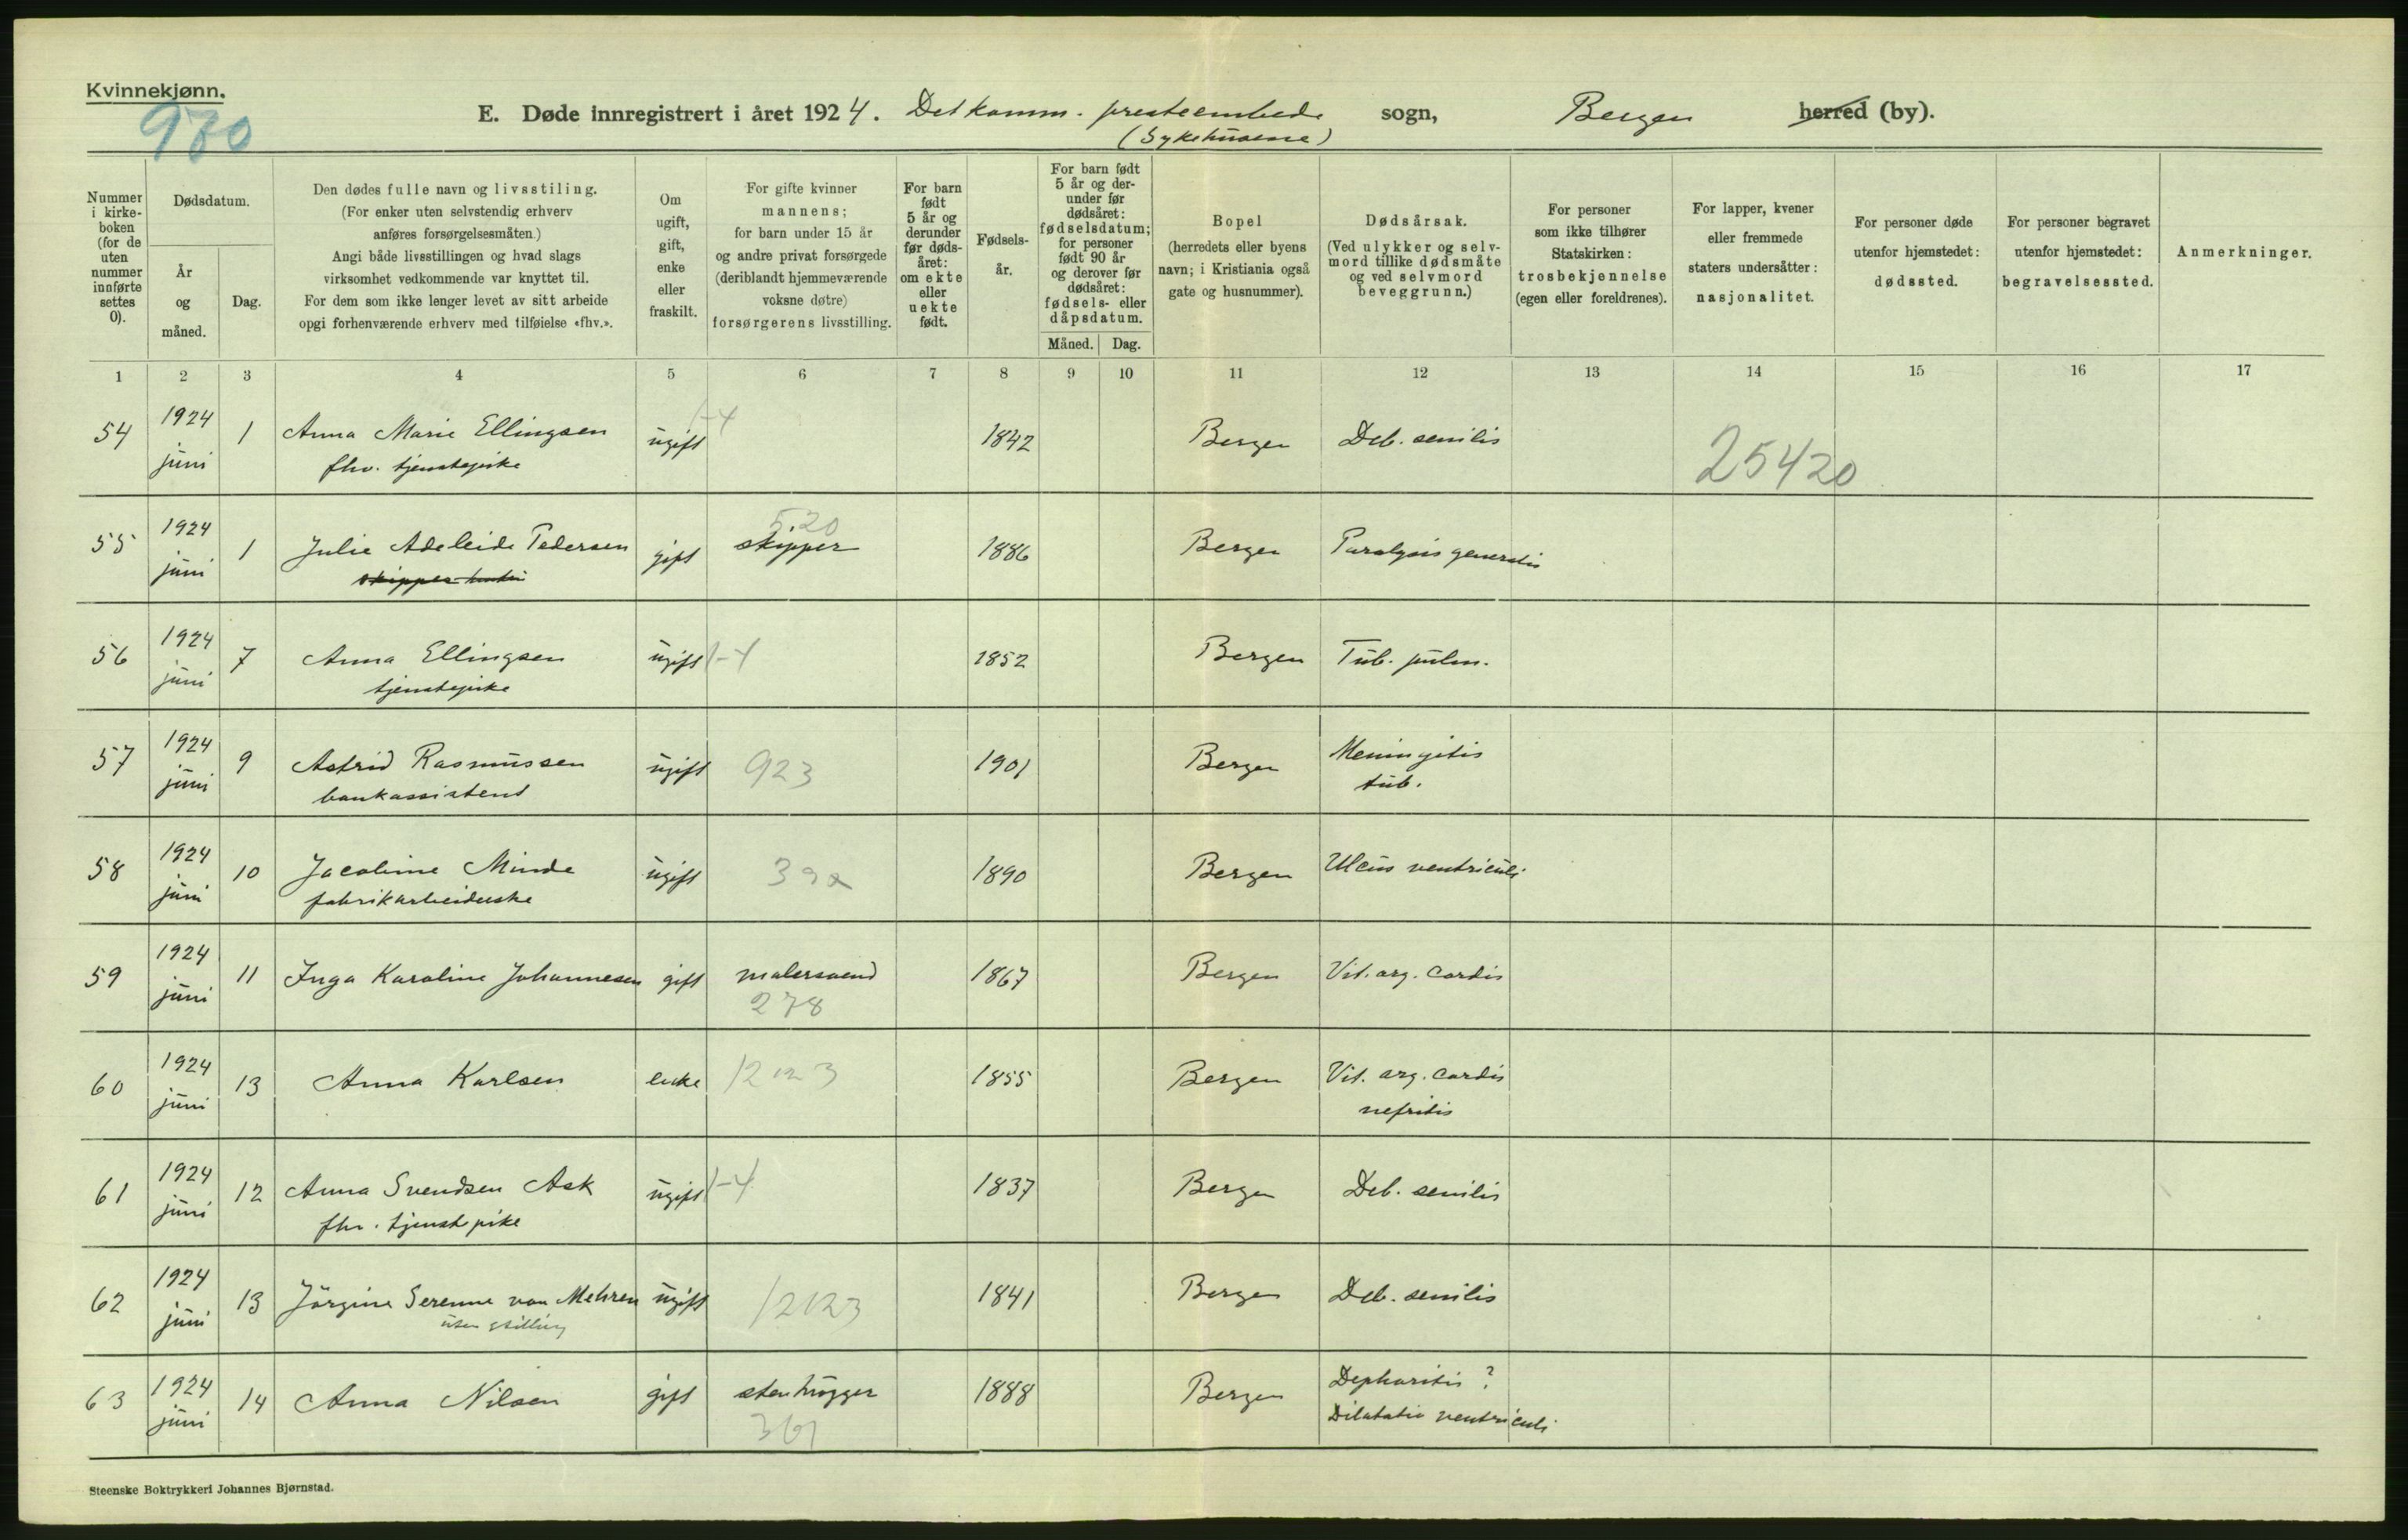 Kvinnekjønn.
970
E. Døde innregistrert i året 1924. Det komm. presteembede sogn, Bergen herred (by).
(Sykehusene)
Nummer i kirke-boken (for de uten nummer innførte settes 0).
Dødsdatum.
År og måned.
Dag.
Den dødes fulle navn og livsstiling.
(For enker uten selvstendig erhverv
anføres forsørgelsesmåten.)
Angi både livsstillingen og hvad slags
virksomhet vedkommende var knyttet til.
For dem som ikke lenger levet av sitt arbeide
opgi forhenværende erhverv med tilføielse «fhv.».
Om ugift, gift, enke eller fraskilt.
For gifte kvinner
mannens;
for barn under 15 år
og andre privat forsørgede
(deriblandt hjemmeværende
voksne døtre)
forsørgerens livsstilling.
For barn født 5 år og derunder før døds-året: om ekte eller uekte født.
Fødsels-år.
For barn født 5 år og der-under før dødsåret: fødselsdatum; for personer født 90 år og derover før dødsåret: fødsels- eller dåpsdatum.
Måned. Dag.
Bopel
(herredets eller byens
navn; i Kristiania også
gate og husnummer).
Dødsårsak.
(Ved ulykker og selv-
mord tillike dødsmåte
og ved selvmord
beveggrunn.)
For personer
som ikke tilhører
Statskirken:
trosbekjennelse
(egen eller foreldrenes).
For lapper, kvener
eller fremmede
staters undersåtter:
nasjonalitet.
For personer døde
utenfor hjemstedet:
dødssted.
For personer begravet
utenfor hjemstedet:
begravelsessted.
Anmerkninger.
1 2 3 4 5 6 7 8 9 10 11 12 13 14 15 16 17
54 1924 juni 1 Anna Marie Ellingsen ugift 1-4 1842 Bergen Deb. senilis
fhv. tjenestepike 25420
55 1924 juni 1 Julie Adeleide Pedersen gift 520 skipper 1886 Bergen Paralysis generalis
skipper hustru
56 1924 juni 7 Anna Ellingsen ugift 1-4 1852 Bergen Tub. pulm.
tjenestepike
57 1924 juni 9 Astrid Rasmussen ugift 923 1901 Bergen Meningitis
bankassistent tub.
58 1924 juni 10 Jacobine Minde ugift 1890 Bergen Ulcus ventriculi
fabrikarbeiderske
59 1924 juni 11 Inga Karoline Johannesen gift malersvend 1867 Bergen Vit. org. cordis
278
60 1924 juni 13 Anna Karlsen enke 12123 1855 Bergen Vit. org. cordis
nefritis
61 1924 juni 12 Anna Svendsen Ask ugift 1-4 1837 Bergen Deb. senilis
fhv. tjenstpike
62 1924 juni 13 Jörgine Serenne von Mehren ugift 12123 1841 Bergen Deb. senilis
uten stilling
63 1924 juni 14 Anna Nilsen gift stenhugger 1888 Bergen Dephoritis ?
361 Dilatatio ventriculi
Steenske Boktrykkeri Johannes Bjørnstad.